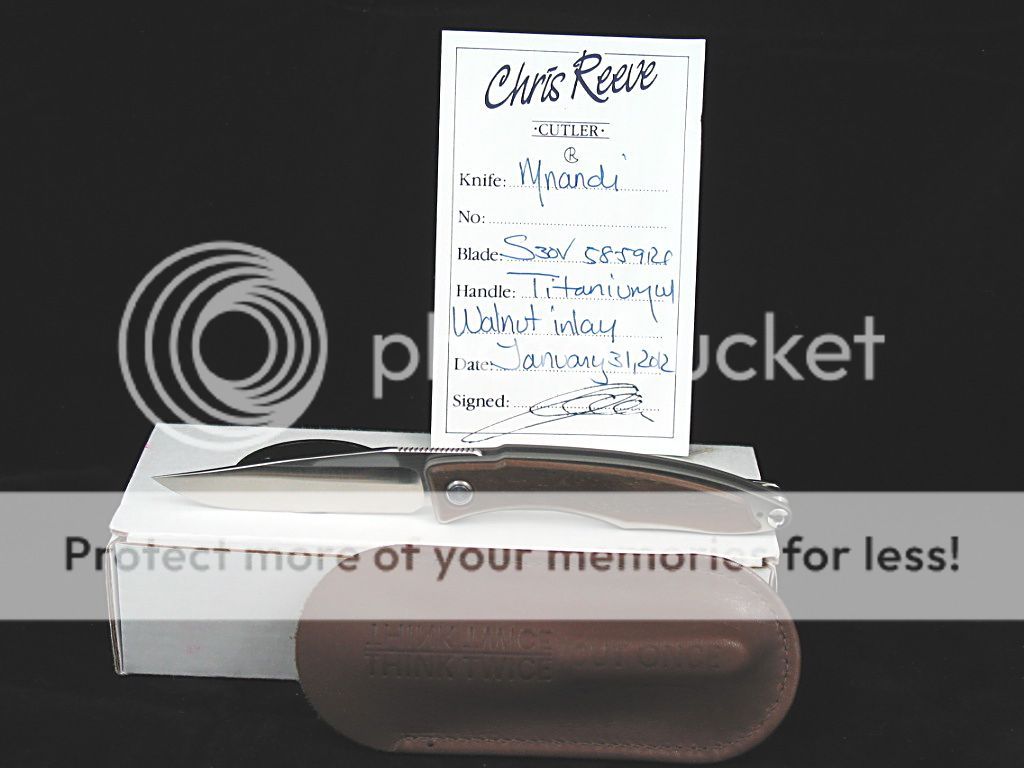 Chris Reeve
·CUTLER·
®
Knife: Mnandi
No:
Blade: S30V 58-59RC
Handle: Titanium w/
Walnut inlay
Date: January 31, 2012
Signed:
photobucket
Protect more of your memories for less!
THINK TWICE
THINK TWICE CUT ONCE